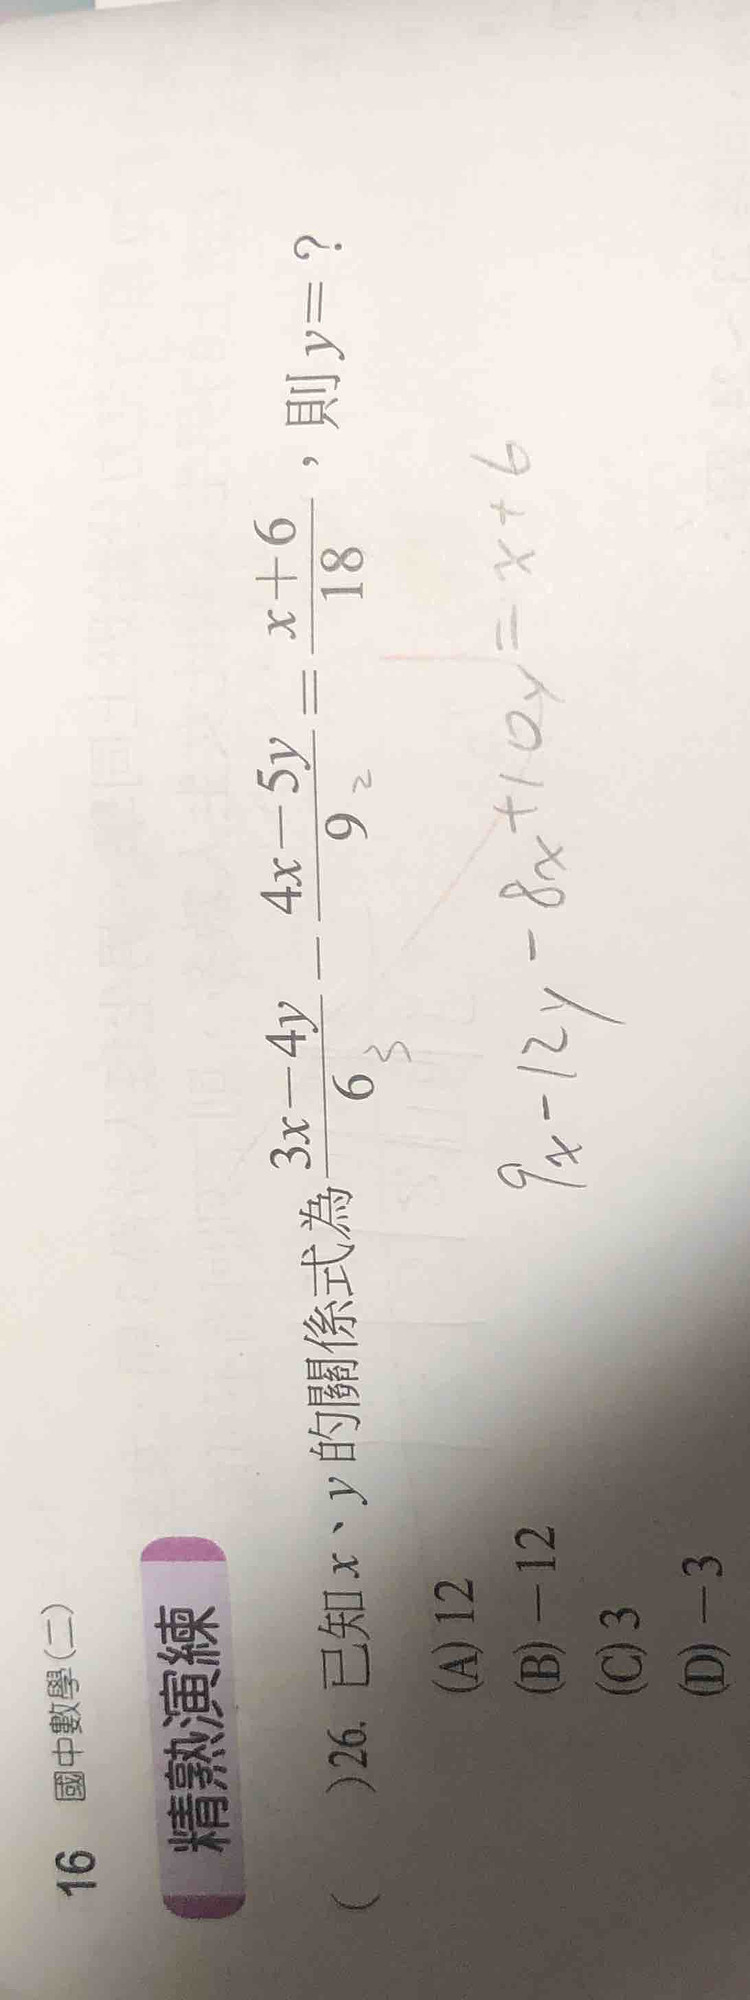 16 國中數學(二)
精熟演練
( )26. 已知 x、y 的關係式為 \frac{3x-4y}{6} - \frac{4x-5y}{9} = \frac{x+6}{18}，則 y=？
3 2
(A) 12
(B) -12
(C) 3
(D) -3
9x-12y-8x+10y=x+6